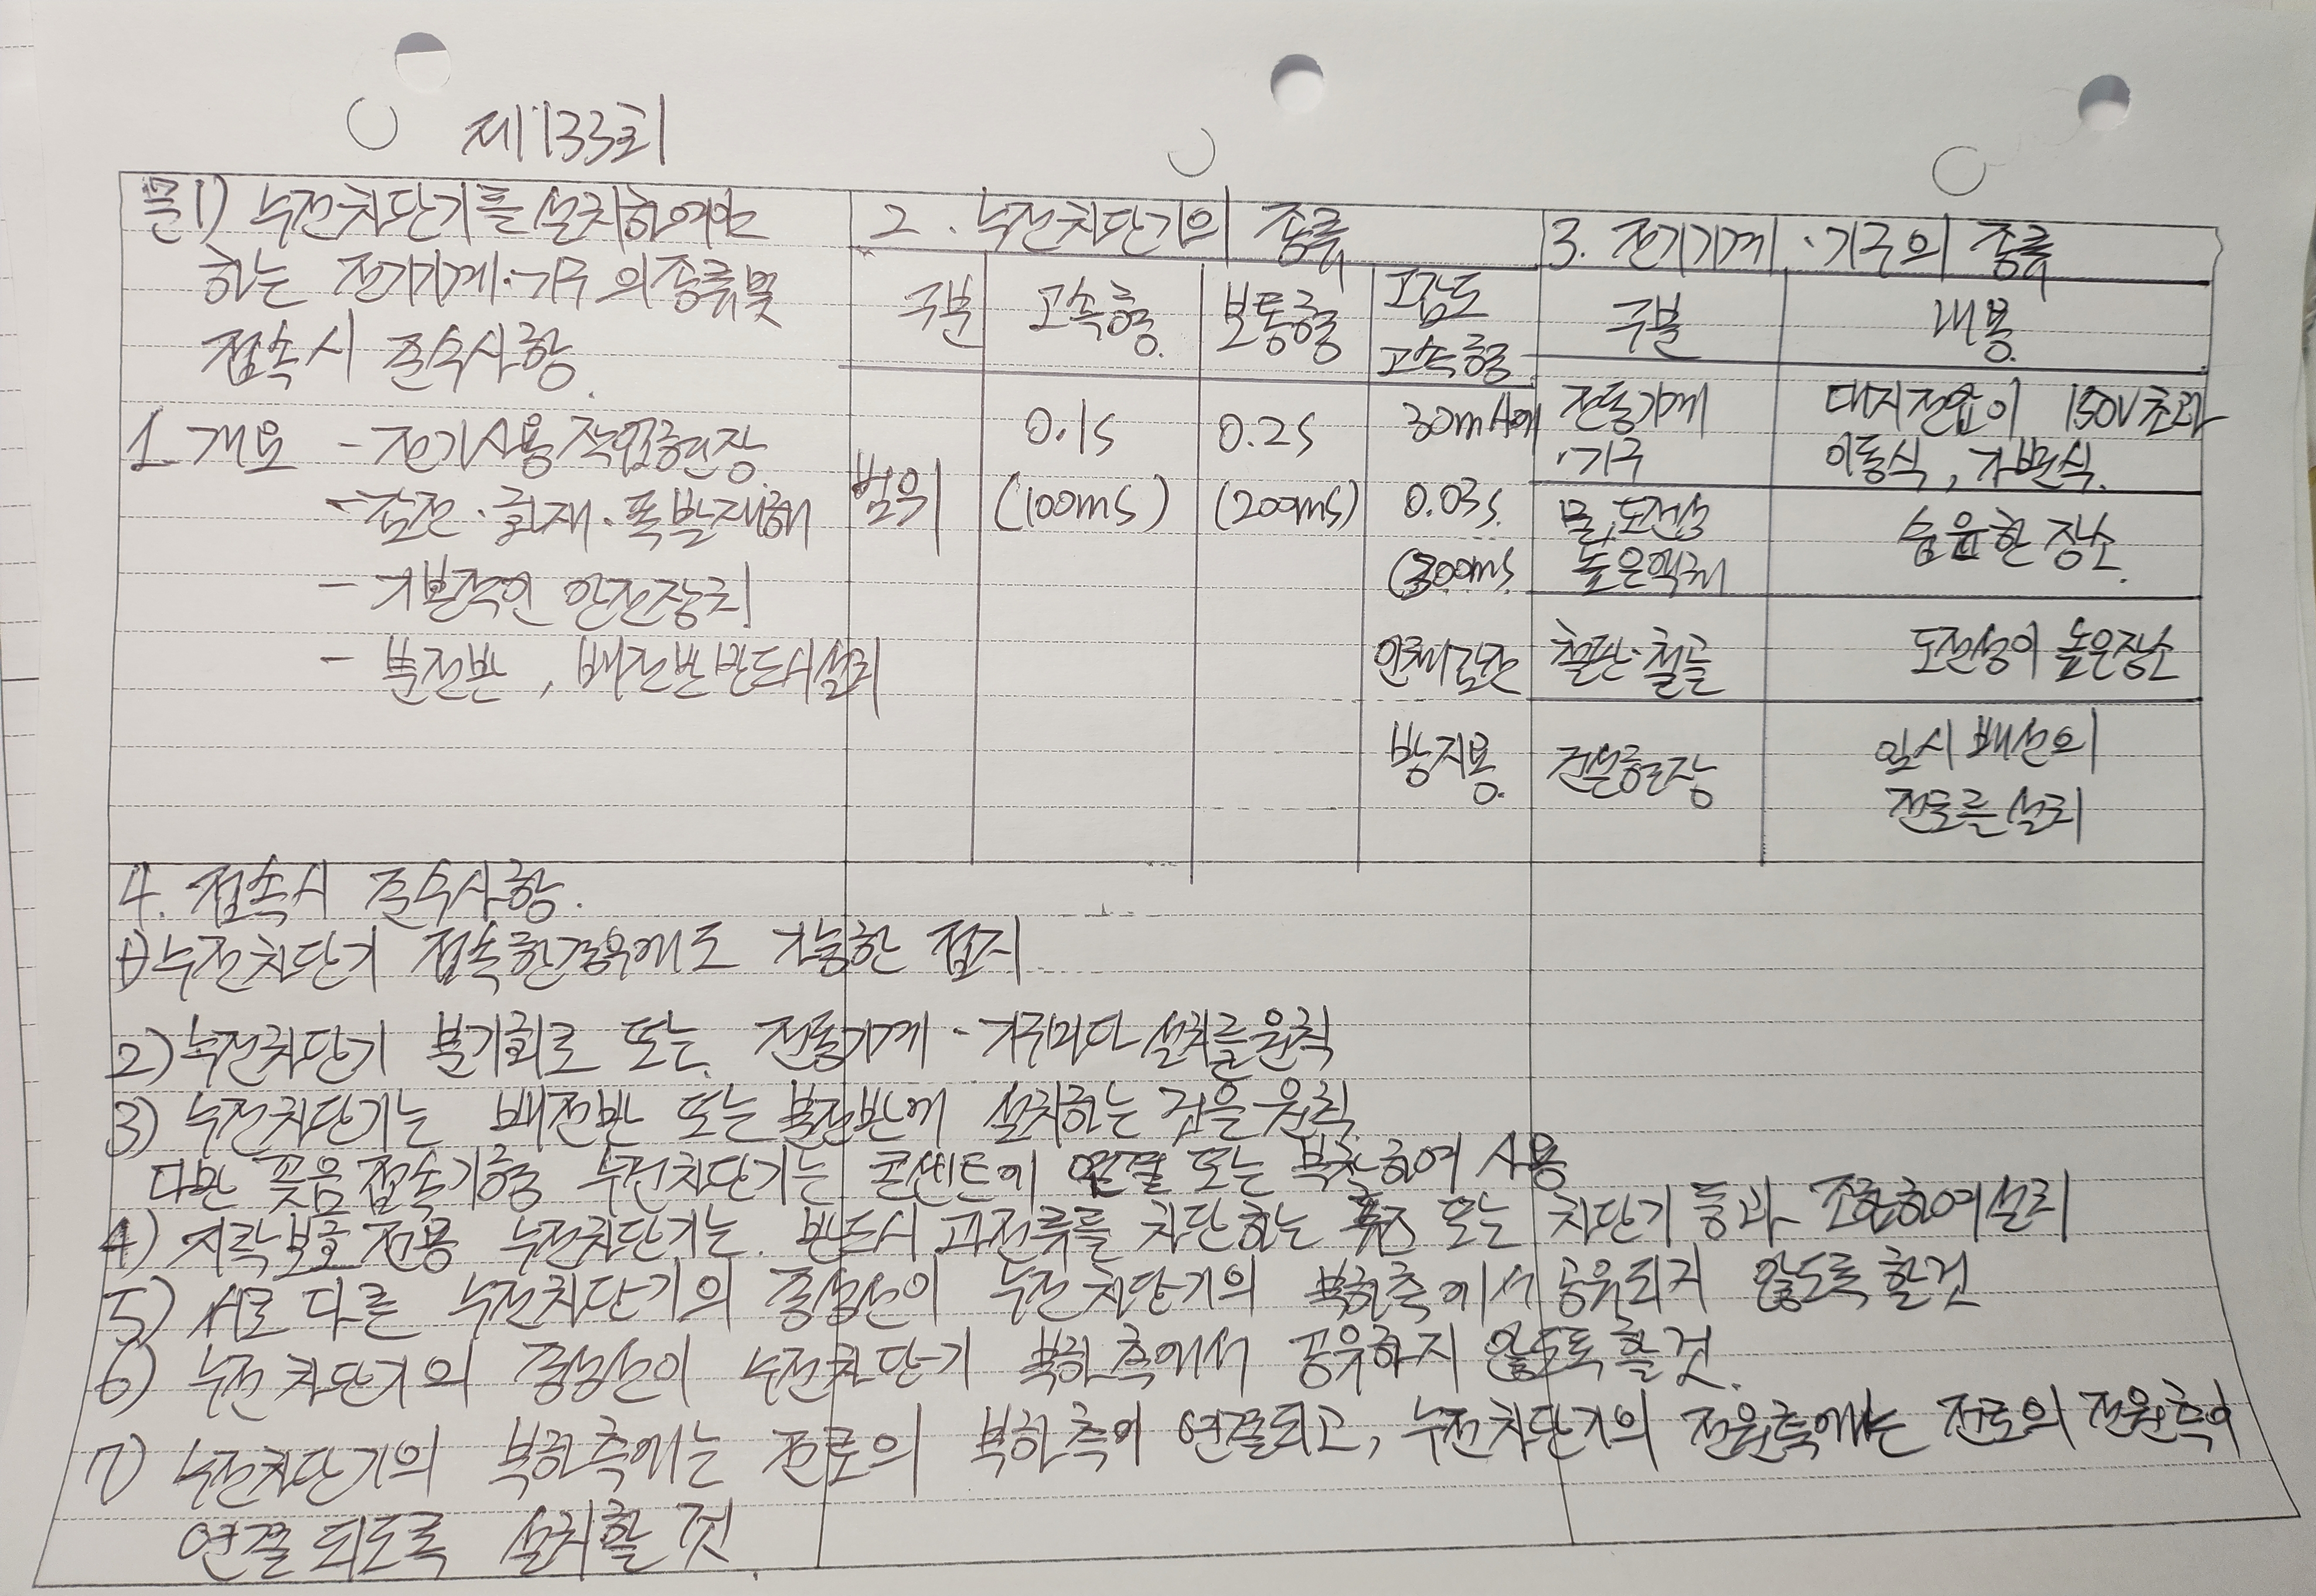 제133회
문1) 누전차단기를 설치하여야
하는 전기기계·기구의 종류 및
접속시 준수사항.
1. 개요 - 전기사용 작업현장
- 감전·화재·폭발재해
- 기본적인 안전장치
- 분전반, 배전반 반드시 설치
2. 누전차단기의 종류
구분 고속형 보통형 고감도
고속형
범위
0.1s 0.2s 30mA에
(100ms) (200ms) 0.03s.
(300ms.
인체감전
방지용.
3. 전기기계·기구의 종류
구분 내용.
전동기계 대지전압이 150V초과
·기구 이동식, 가반식.
물,도전성 습윤한 장소.
높은액체
철판·철골 도전성이 높은장소
건설현장 임시 배선의
전로를 설치
4. 접속시 준수사항.
1) 누전차단기 접속한경우에도 가능한 접지
2) 누전차단기 분기회로 또는 전동기계·기구마다 설치를원칙
3) 누전차단기는 배전반 또는 분전반에 설치하는 것을 원칙
다만 꽂음접속기형 누전차단기는 콘센트에 연결 또는 부착하여 사용
4) 지락보호전용 누전차단기는 반드시 과전류를 차단하는 퓨즈 또는 차단기 등과 조합하여설치
5) 서로 다른 누전차단기의 중성선이 누전차단기의 부하측에서 공유되지 않도록 할것
6) 누전차단기의 중성선이 누전차단기 부하측에서 공유하지 않도록 할 것.
7) 누전차단기의 부하측에는 전로의 부하측이 연결되고, 누전차단기의 전원측에는 전로의 전원측이
연결되도록 설치할 것.